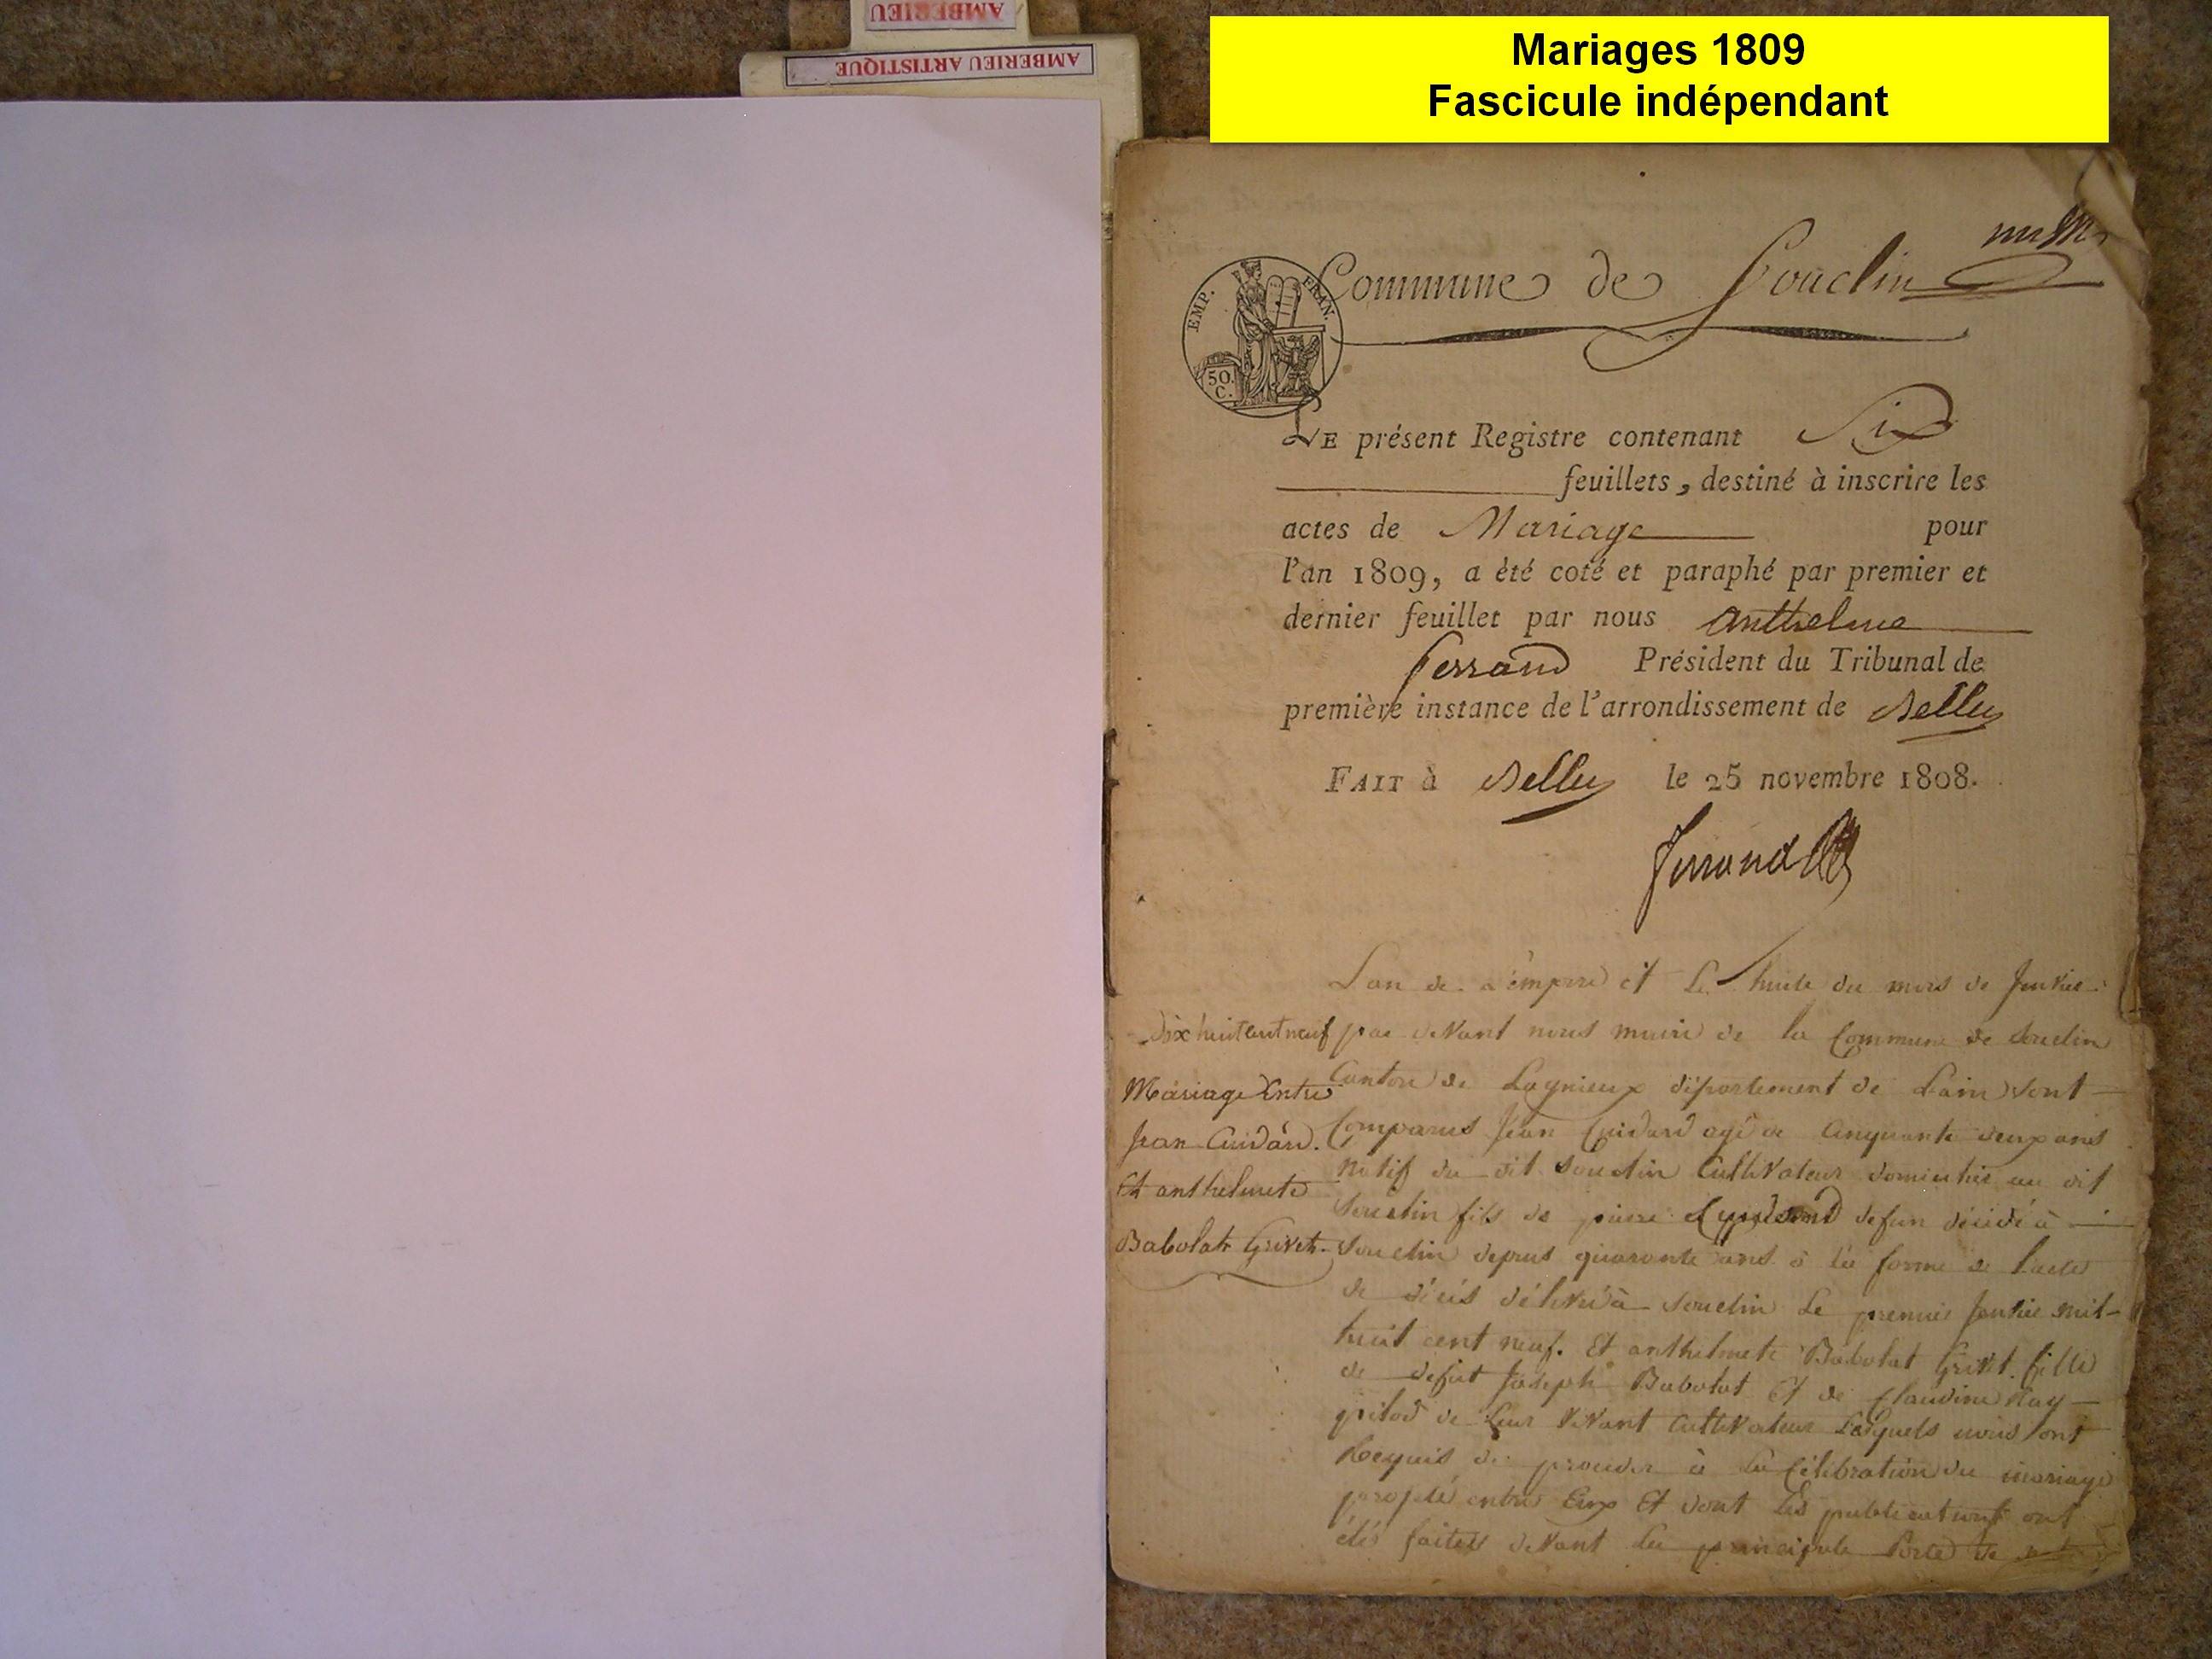 AMBERIEU
AMBERIEU ARTISTIQUE
Mariages 1809
Fascicule indépendant
Commune de Souclin
EMP. FRAN.
50.
C.
LE présent Registre contenant Six
feuillets, destiné à inscrire les
actes de Mariage pour
l'an 1809, a été coté et paraphé par premier et
dernier feuillet par nous anthelme
ferrand Président du Tribunal de
première instance de l'arrondissement de Belley
FAIT à Belley le 25 novembre 1808.
ferrand
Lan de lempire et Le huite du mois de Jenvier
Dix huit cent neuf
par devant nous maire de la Commune de Souclin
Canton de Lagnieux département de Lain sont
Mariage Entre
Jean Cuidard.
Et anthelmete
Babolat Grivet
Comparus Jean Cuidard agé de Cinquante deux ans
natif du dit Souclin Cultivateur domicilié au dit
Souclin fils de pierre defun décédé à
Souclin depuis quaronte ans à la forme de lacte
de décés délivré à Souclin Le premier Jenvier mil
huit cent neuf. Et anthelmete Babolat Grivet fille
de defut Joseph Babolat Et de Claudine Ray
pilod de Leur vivant Cultivateur Lesquels nous ont
Requis de proceder à La Célébration du mariage
projeté entre Eux Et dont Les publications ont
étés faites devant La principale Porte de